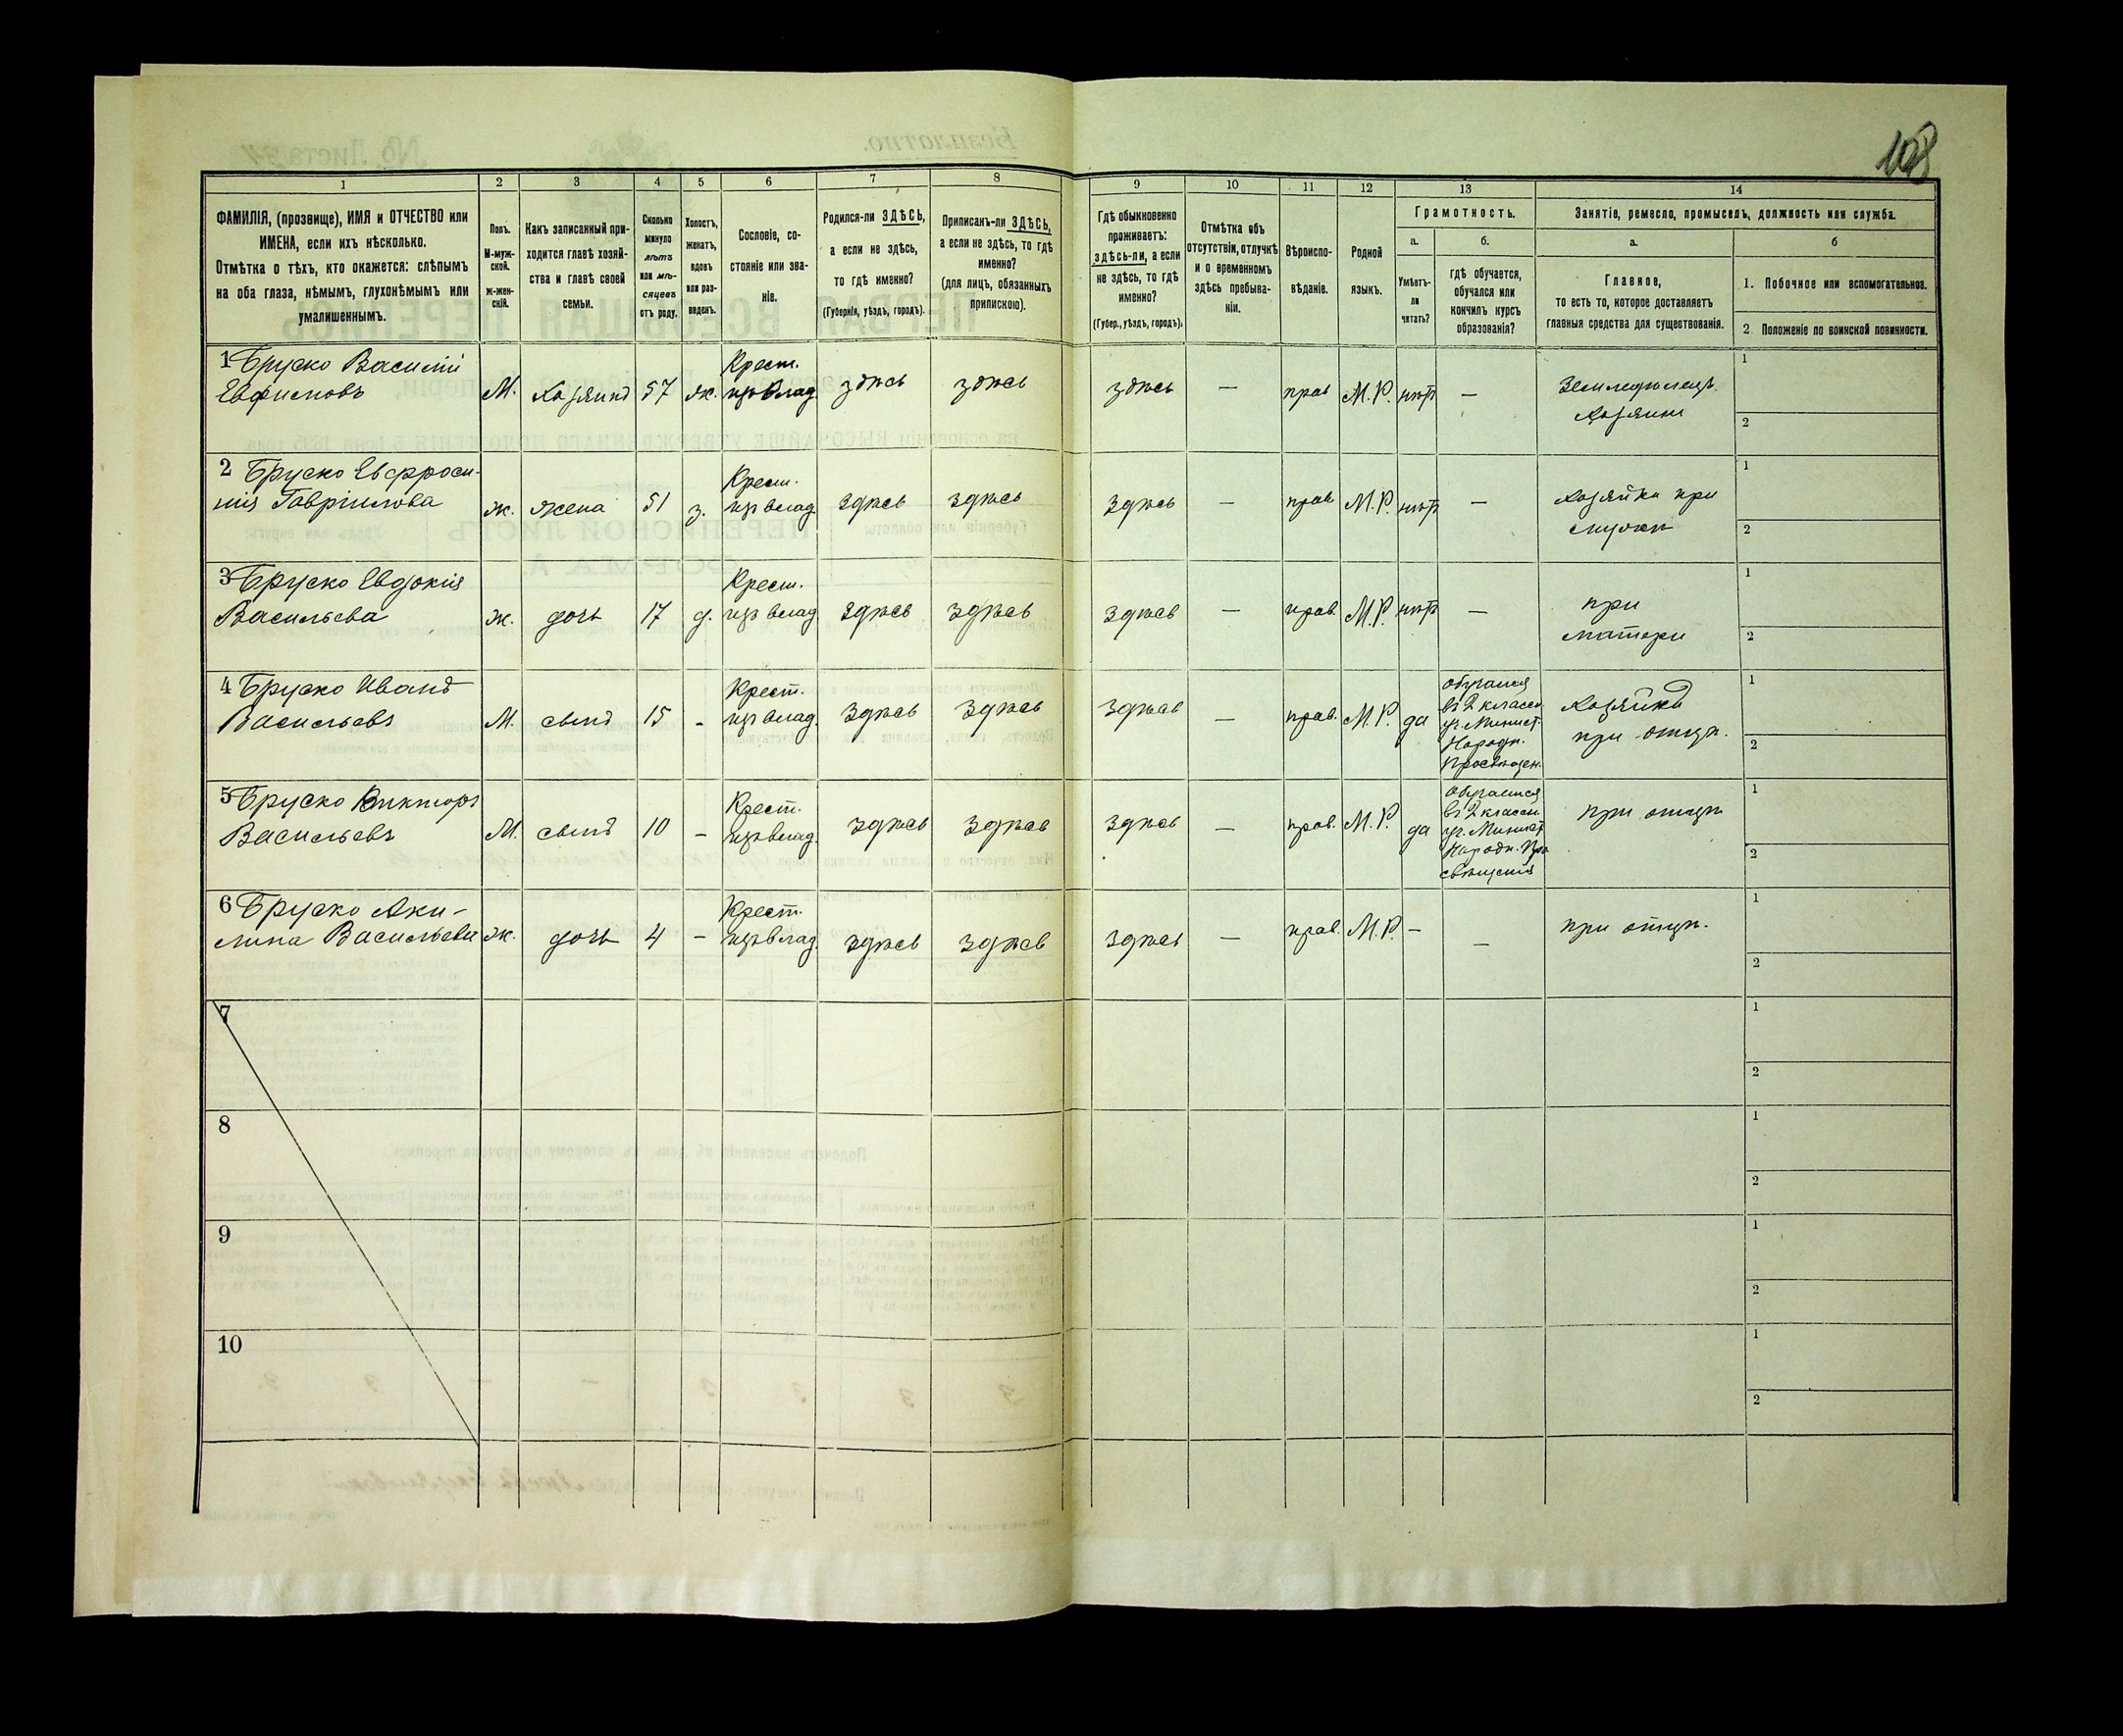 108
1 2 3 4 5 6 7 8 9 10 11 12 13 14
ФАМИЛІЯ, (прозвище), ИМЯ и ОТЧЕСТВО или
ИМЕНА, если ихъ нѣсколько.
Отмѣтка о тѣхъ, кто окажется: слѣпымъ
на оба глаза, нѣмымъ, глухонѣмымъ или
умалишеннымъ.
Полъ.
М-муж-
ской.
ж-жен-
скій.
Какъ записанный при-
ходится главѣ хозяй-
ства и главѣ своей
семьи.
Сколько
минуло
лѣтъ
или мѣ-
сяцевъ
отъ роду.
Холостъ,
женатъ,
вдовъ
или раз-
веденъ.
Сословіе, со-
стояніе или зва-
ніе.
Родился-ли ЗДѢСЬ,
а если не здѣсь,
то гдѣ именно?
(Губернія, уѣздъ, городъ).
Приписанъ-ли ЗДѢСЬ,
а если не здѣсь, то гдѣ
именно?
(для лицъ, обязанныхъ
припискою).
Гдѣ обыкновенно
проживаетъ:
здѣсь-ли, а если
не здѣсь, то гдѣ
именно?
(Губер., уѣздъ, городъ).
Отмѣтка объ
отсутствіи, отлучкѣ
и о временномъ
здѣсь пребыва-
ніи.
Вѣроиспо-
вѣданіе.
Родной
языкъ.
Грамотность.
а.
Умѣетъ-
ли
читать?
б.
гдѣ обучается,
обучался или
кончилъ курсъ
образованія?
Занятіе, ремесло, промыселъ, должность или служба.
а.
Главное,
то есть то, которое доставляетъ
главныя средства для существованія.
б
1. Побочное или вспомогательное.
2. Положеніе по воинской повинности.
1 Бруско Василій
Евфимовъ
М.
Хозяинъ
57
ж.
Крест.
изъ влад.
здѣсь
здѣсь
здѣсь
—
прав
М.Р.
нѣтъ
—
Земледѣлецъ
хозяинъ
1
2
2 Бруско Евфроси-
нія Гавріилова
ж.
жена
51
з.
Крест.
изъ влад.
здѣсь
здѣсь
здѣсь
—
прав
М.Р.
нѣтъ
—
хозяйка при
мужѣ
1
2
3 Бруско Евдокія
Васильева
ж.
дочь
17
д.
Крест.
изъ влад
здѣсь
здѣсь
здѣсь
—
прав.
М.Р.
нѣтъ
—
при
матери
1
2
4 Бруско Иванъ
Васильевъ
М.
сынъ
15
-
Крест.
изъ влад.
здѣсь
здѣсь
здѣсь
—
прав.
М.Р.
да
обучался
въ 2 классн.
уч. Минист.
Народн.
Просвѣщен.
при отцѣ.
1
2
5 Бруско Викторъ
Васильевъ
М.
сынъ
10
–
Крест.
изъ влад.
здѣсь
здѣсь
здѣсь
—
прав.
М.Р.
да
Обучается
въ 2 классн.
уч. Минист
Народн. Про
свѣщенія
при отцѣ
1
2
6 Бруско Аки-
лина Васильева
ж.
дочь
4
–
Крест.
изъ влад.
здѣсь
здѣсь
здѣсь
—
прав.
М.Р.
–
—
при отцѣ.
1
2
7
1
2
8
1
2
9
1
2
10
1
2